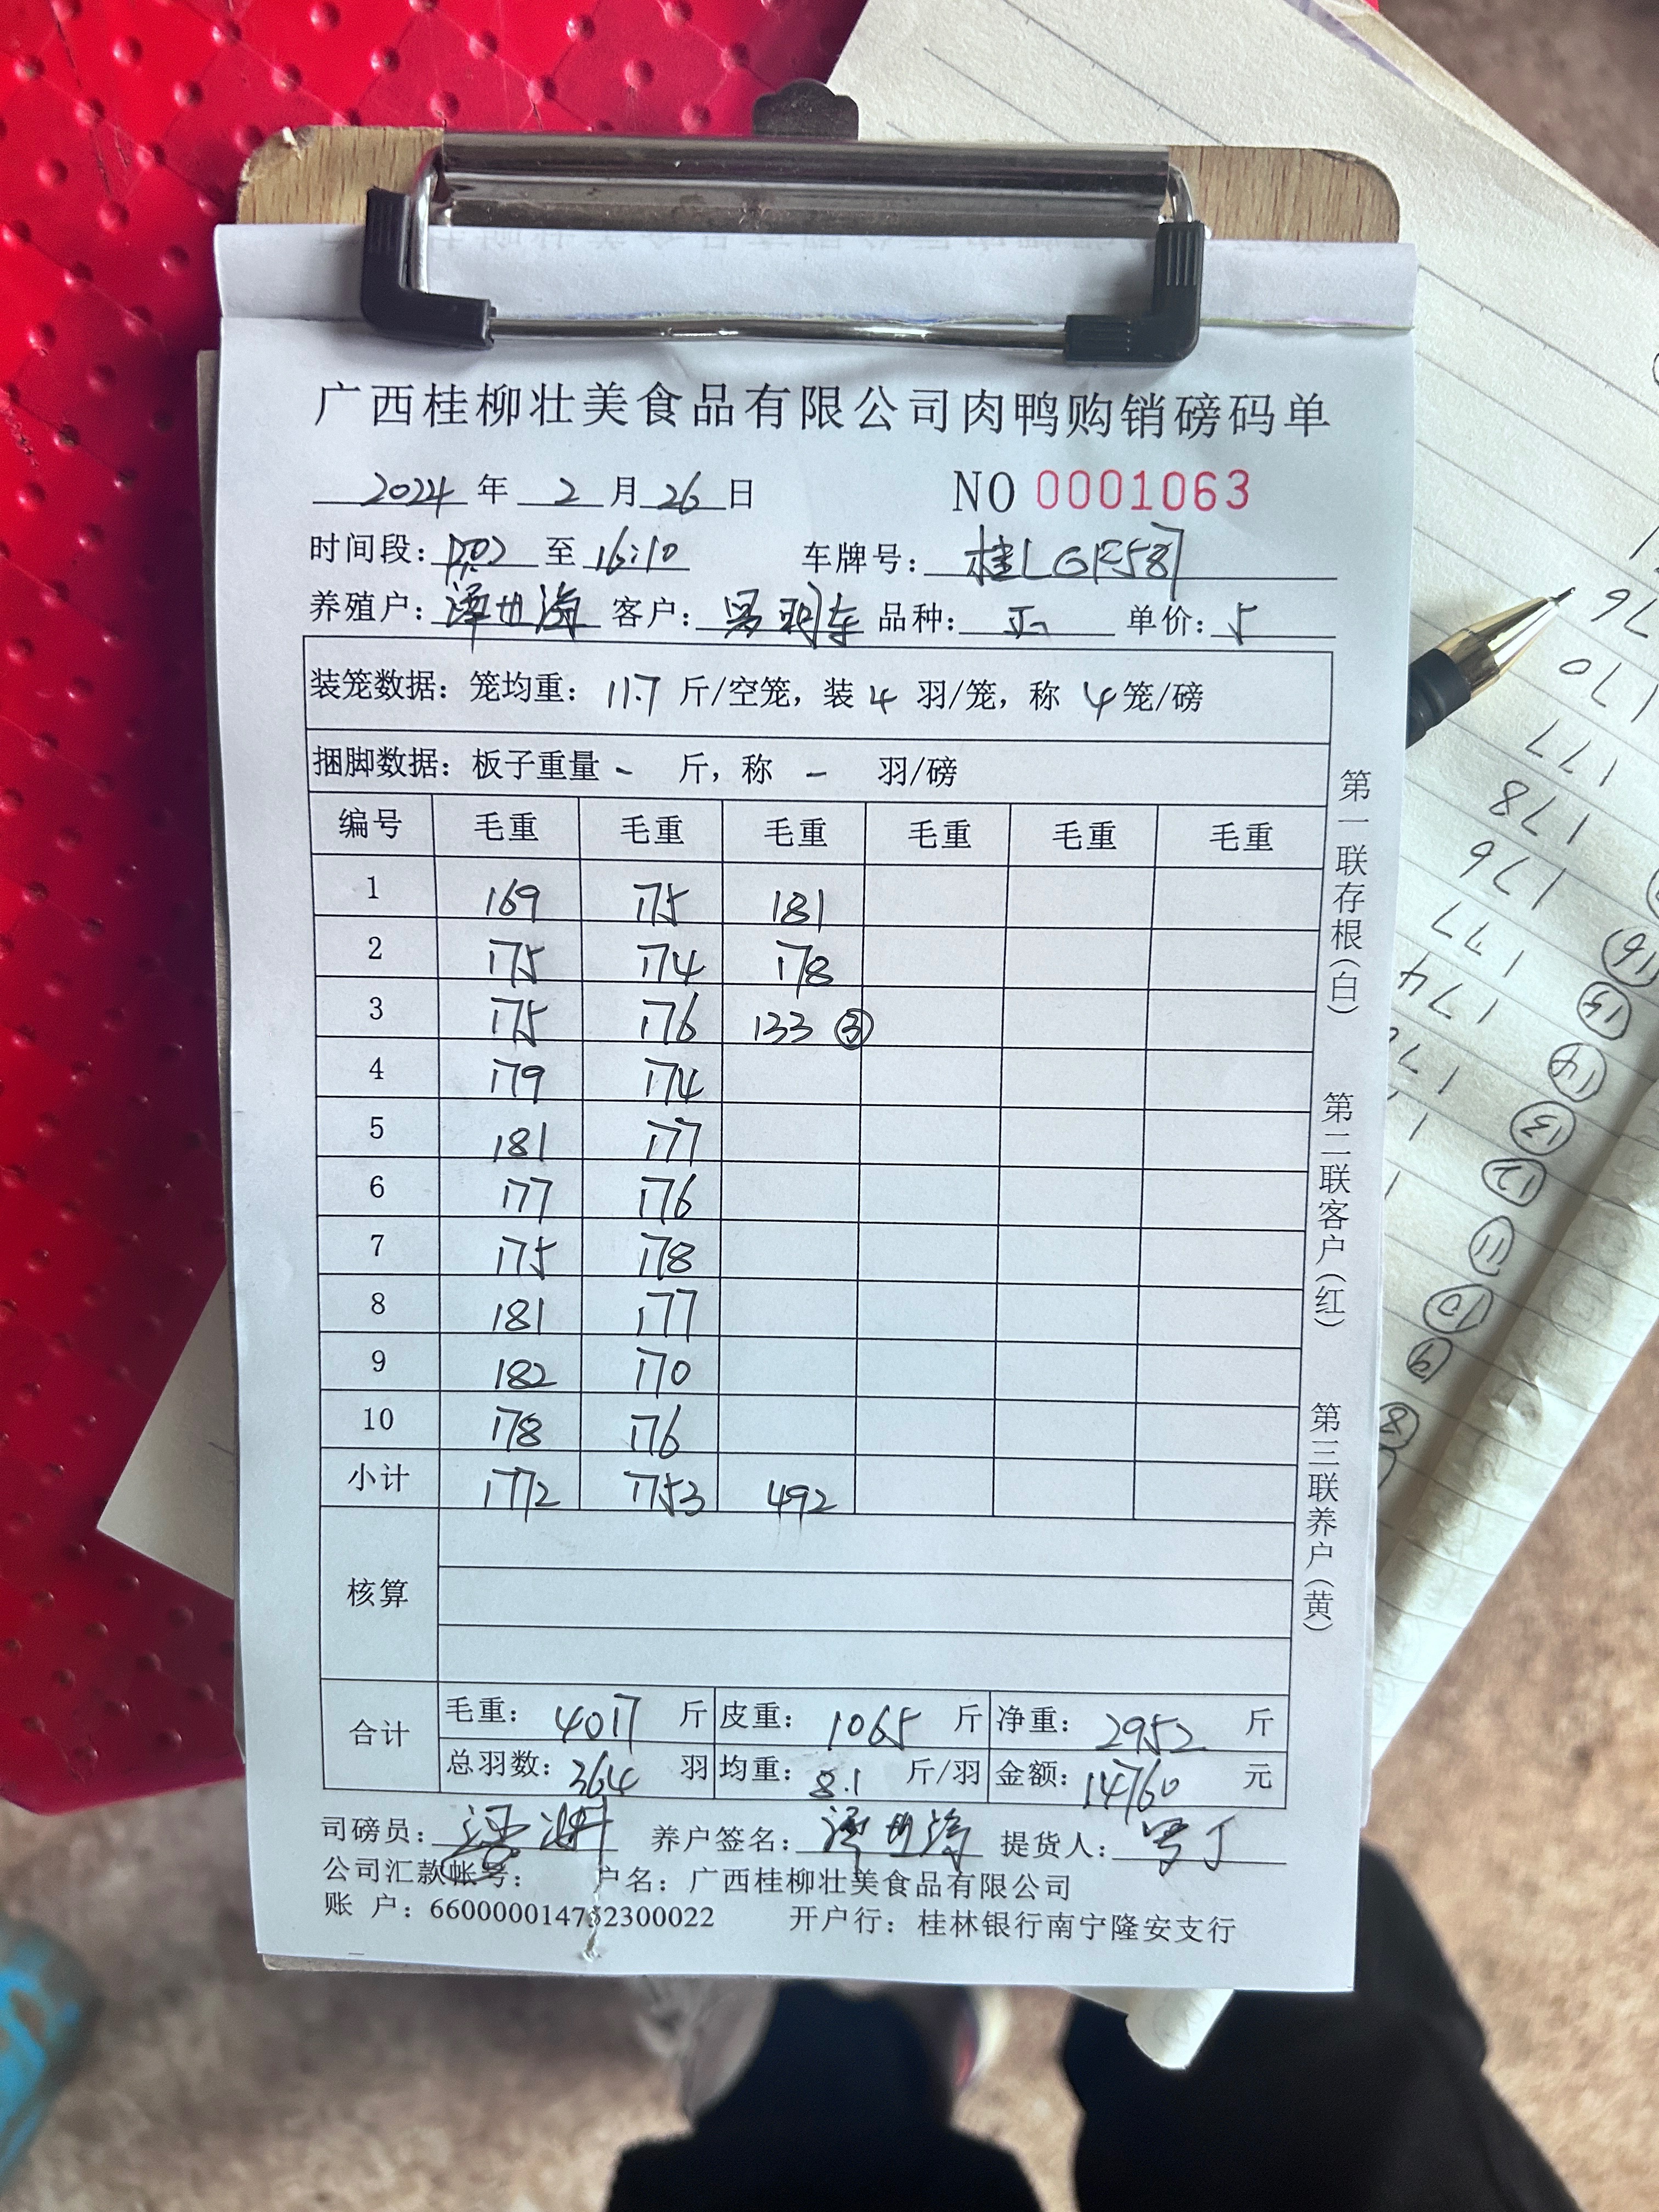 广西桂柳壮美食品有限公司肉鸭购销磅码单
2024 年 2 月 26 日 NO 0001063
时间段: 至 16:10 车牌号: 桂L
养殖户: 客户: 品种: 单价: 5
装笼数据: 笼均重: 11.7 斤/空笼, 装 4 羽/笼, 称 4 笼/磅
捆脚数据: 板子重量 - 斤, 称 - 羽/磅
编号 毛重 毛重 毛重 毛重 毛重 毛重
1 169 175 181
2 175 174 178
3 175 176 133 ③
4 179 174
5 181 177
6 177 176
7 175 178
8 181 177
9 182 170
10 178 176
小计 1772 1753 492
核算
合计
毛重: 4017 斤 皮重: 1065 斤 净重: 2952 斤
总羽数: 364 羽 均重: 8.1 斤/羽 金额: 14760 元
司磅员: 养户签名: 提货人:
公司汇款帐号: 户名: 广西桂柳壮美食品有限公司
账 户: 660000014752300022 开户行: 桂林银行南宁隆安支行
第一联存根(白)
第二联客户(红)
第三联养户(黄)
76
170
177
178
176
177
174
⑯
⑮
⑭
⑬
⑫
⑪
⑩
⑨
⑧